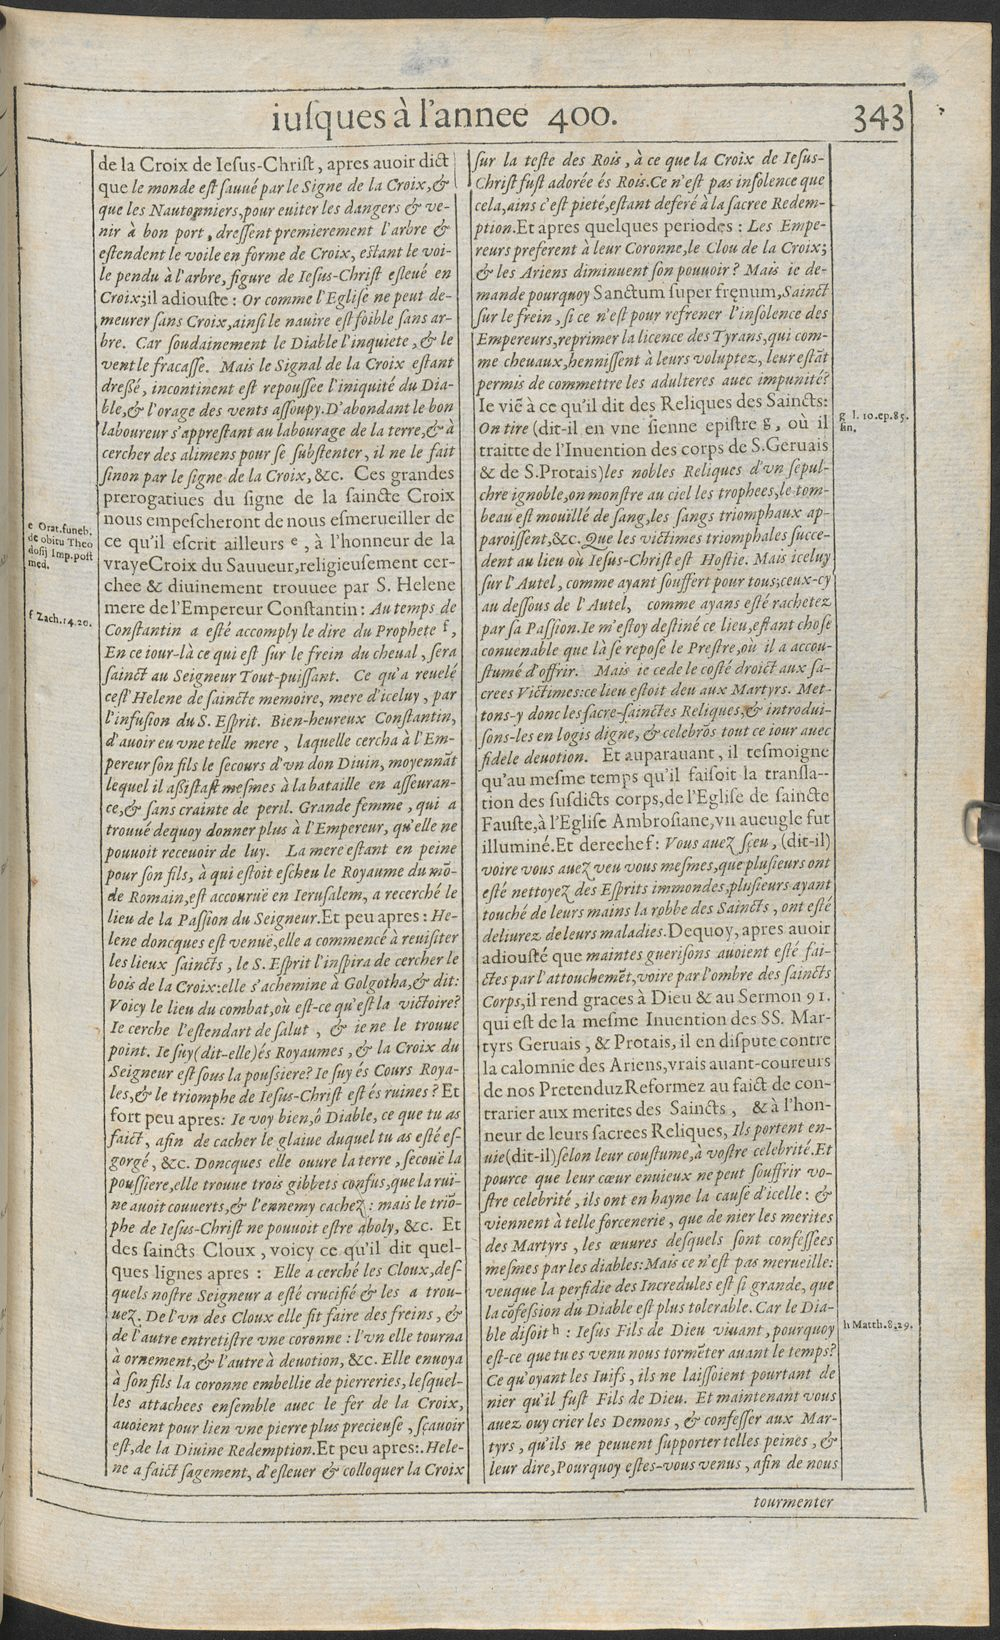 iuſques à l'annee 400.
343
de la Croix de Ieſus-Chriſt, apres auoir dict
que le monde eſt ſauué par le Signe de la Croix, &
que les Nautonniers, pour euiter les dangers & ve-
nir à bon port, dreſſent premierement l'arbre &
eſtendent le voile en forme de Croix, eſtant le voi-
le pendu à l'arbre, figure de Ieſus-Chriſt eſleué en
Croix; il adiouſte: Or comme l'Egliſe ne peut de-
meurer ſans Croix, ainſi le nauire eſt foible ſans ar-
bre. Car ſoudainement le Diable l'inquiete, & le
vent le fracaſſe. Mais le Signal de la Croix eſtant
dreſſé, incontinent eſt repouſſee l'iniquité du Dia-
ble, & l'orage des vents aſſoupy. D'abondant le bon
laboureur s'appreſtant au labourage de la terre, & à
cercher des alimens pour ſe ſubſtenter, il ne le fait
ſinon par le ſigne de la Croix, &c. Ces grandes
prerogatiues du ſigne de la ſaincte Croix
nous empeſcheront de nous eſmerueiller de
ce qu'il eſcrit ailleurs e, à l'honneur de la
vraye Croix du Sauueur, religieuſement cer-
chee & diuinement trouuee par S. Helene
mere de l'Empereur Conſtantin: Au temps de
Conſtantin a eſté accomply le dire du Prophete f,
En ce iour-là ce qui eſt ſur le frein du cheual, ſera
ſainct au Seigneur Tout-puiſſant. Ce qu'a reuelé
ceſt' Helene de ſaincte memoire, mere d'iceluy, par
l'infuſion du S. Eſprit. Bien-heureux Conſtantin,
d'auoir eu vne telle mere, laquelle cercha à l'Em-
pereur ſon fils le ſecours d'vn don Diuin, moyennāt
lequel il aſſiſtaſt meſmes à la bataille en aſſeuran-
ce, & ſans crainte de peril. Grande femme, qui a
trouué dequoy donner plus à l'Empereur, qu'elle ne
pouuoit receuoir de luy. La mere eſtant en peine
pour ſon fils, à qui eſtoit eſcheu le Royaume du mō-
de Romain, eſt accouruë en Ieruſalem, a recerché le
lieu de la Paſſion du Seigneur. Et peu apres: He-
lene doncques eſt venuë, elle a commencé à reuiſiter
les lieux ſaincts, le S. Eſprit l'inſpira de cercher le
bois de la Croix: elle s'achemine à Golgotha, & dit:
Voicy le lieu du combat, où eſt-ce qu'eſt la victoire?
Ie cerche l'eſtendart de ſalut, & ie ne le trouue
point. Ie ſuy (dit-elle) és Royaumes, & la Croix du
Seigneur eſt ſous la pouſſiere? Ie ſuy és Cours Roya-
les, & le triomphe de Ieſus-Chriſt eſt és ruines? Et
fort peu apres: Ie voy bien, ô Diable, ce que tu as
faict, afin de cacher le glaiue duquel tu as eſté eſ-
gorgé, &c. Doncques elle ouure la terre, ſecouë la
pouſſiere, elle trouue trois gibbets confus, que la rui-
ne auoit couuerts, & l'ennemy cachez: mais le triō-
phe de Ieſus-Chriſt ne pouuoit eſtre aboly, &c. Et
des ſaincts Cloux, voicy ce qu'il dit quel-
ques lignes apres: Elle a cerché les Cloux, deſ-
quels noſtre Seigneur a eſté crucifié & les a trou-
uez. De l'vn des Cloux elle fit faire des freins, &
de l'autre entretiſtre vne coronne: l'vn elle tourna
à ornement, & l'autre à deuotion, &c. Elle enuoya
à ſon fils la coronne embellie de pierreries, leſquel-
les attachees enſemble auec le fer de la Croix,
auoient pour lien vne pierre plus precieuſe, ſçauoir
eſt, de la Diuine Redemption. Et peu apres:. Hele-
ne a faict ſagement, d'eſleuer & colloquer la Croix
e Orat. funeb.
de obitu Theo
doſij Imp. poſt
med.
f Zach. 14.20.
ſur la teſte des Rois, à ce que la Croix de Ieſus-
Chriſt fuſt adorée és Rois. Ce n'eſt pas inſolence que
cela, ains c'eſt pieté, eſtant deferé à la ſacree Redem-
ption. Et apres quelques periodes: Les Empe-
reurs preferent à leur Coronne, le Clou de la Croix;
& les Ariens diminuent ſon pouuoir? Mais ie de-
mande pourquoy Sanctum ſuper fręnum, Sainct
ſur le frein, ſi ce n'eſt pour refrener l'inſolence des
Empereurs, reprimer la licence des Tyrans, qui com-
me cheuaux, henniſſent à leurs voluptez, leur eſtāt
permis de commettre les adulteres auec impunité?
Ie viē à ce qu'il dit des Reliques des Saincts:
On tire (dit-il en vne ſienne epiſtre g, où il
traitte de l'Inuention des corps de S. Geruais
& de S. Protais) les nobles Reliques d'vn ſepul-
chre ignoble, on monſtre au ciel les trophees, le tom-
beau eſt mouillé de ſang, les ſangs triomphaux ap-
paroiſſent, &c. Que les victimes triomphales ſucce-
dent au lieu où Ieſus-Chriſt eſt Hoſtie. Mais iceluy
ſur l'Autel, comme ayant ſouffert pour tous; ceux-cy
au deſſous de l'Autel, comme ayans eſté rachetez
par ſa Paſſion. Ie m'eſtoy deſtiné ce lieu, eſtant choſe
conuenable que là ſe repoſe le Preſtre, où il a accou-
ſtumé d'offrir. Mais ie cede le coſté droict aux ſa-
crees Victimes: ce lieu eſtoit deu aux Martyrs. Met-
tons-y donc les ſacre-ſainctes Reliques, & introdui-
ſons-les en logis digne, & celebrōs tout ce iour auec
fidele deuotion. Et auparauant, il teſmoigne
qu'au meſme temps qu'il faiſoit la tranſla-
tion des ſuſdicts corps, de l'Egliſe de ſaincte
Fauſte, à l'Egliſe Ambroſiane, vn aueugle fut
illuminé. Et derechef: Vous auez ſçeu, (dit-il)
voire vous auez veu vous meſmes, que pluſieurs ont
eſté nettoyez des Eſprits immondes, pluſieurs ayant
touché de leurs mains la robbe des Saincts, ont eſté
deliurez de leurs maladies. Dequoy, apres auoir
adiouſté que maintes gueriſons auoient eſté fai-
ctes par l'attouchemēt, voire par l'ombre des ſaincts
Corps, il rend graces à Dieu & au Sermon 91.
qui eſt de la meſme Inuention des SS. Mar-
tyrs Geruais, & Protais, il en diſpute contre
la calomnie des Ariens, vrais auant-coureurs
de nos Pretenduz Reformez au faict de con-
trarier aux merites des Saincts, & à l'hon-
neur de leurs ſacrees Reliques, Ils portent en-
uie (dit-il) ſelon leur couſtume, à voſtre celebrité. Et
pource que leur cœur enuieux ne peut ſouffrir vo-
ſtre celebrité, ils ont en hayne la cauſe d'icelle: &
viennent à telle forcenerie, que de nier les merites
des Martyrs, les œuures deſquels ſont confeſſees
meſmes par les diables: Mais ce n'eſt pas merueille:
veuque la perfidie des Incredules eſt ſi grande, que
la cōfeſſion du Diable eſt plus tolerable. Car le Dia-
ble diſoit h: Ieſus Fils de Dieu viuant, pourquoy
eſt-ce que tu es venu nous tormēter auant le temps?
Ce qu'oyant les Iuifs, ils ne laiſſoient pourtant de
nier qu'il fuſt Fils de Dieu. Et maintenant vous
auez ouy crier les Demons, & confeſſer aux Mar-
tyrs, qu'ils ne peuuent ſupporter telles peines, &
leur dire, Pourquoy eſtes-vous venus, afin de nous
g l. 10. ep. 85.
ſin.
h Matth. 8.29.
tourmenter